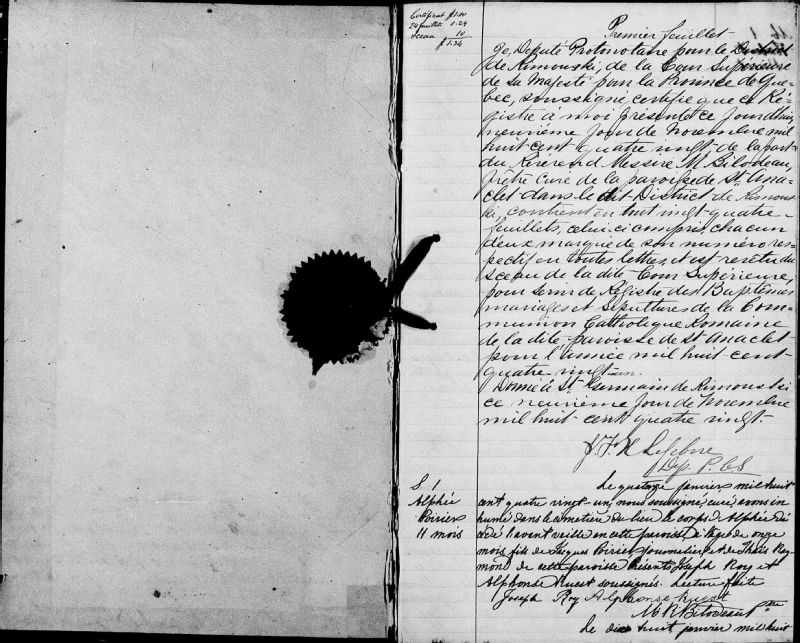 Certificat $1.00
24 feuillets 0.24
Sceau 10
$1.34
Premier feuillet
Je, Député Protonotaire pour le District
de Rimouski, de la Cour Supérieure
de Sa Majesté pour la Province de Qué-
bec, soussigné certifie que ce Ré-
gistre à moi présenté ce jourd'hui,
neuvième jour de Novembre mil
huit cent quatre vingt de la part
du Révérend Messire M. Bilodeau,
prêtre curé de la paroisse de St. Ana-
clet dans le dit District de Rimous-
ki, contient en tout vingt-quatre
feuillets, celui-ci compris, chacun
d'eux marqué de son numéro res-
pectif en toutes lettres, et est revêtu du
sceau de la dite Cour Supérieure,
pour servir de Régistre des Baptêmes
mariages et Sépultures de la Com-
munion Catholique Romaine
de la dite paroisse de St Anaclet
pour l'année mil huit cent
quatre-vingt-un.
Donné à St. Germain de Rimouski
ce neuvième jour de Novembre
mil huit cent quatre vingt.
Lefebvre
Dep. P. C S
S 1
Alphée
Poirier
11 mois
Le quatorze janvier mil huit
cent quatre vingt-un, nous soussigné, curé, avons in
humé dans le cimetière du lieu le corps d'Alphée dé
cédé l'avant veille en cette paroisse à l'âge de onze
mois fils de Jacques Poirier journalier et de Thaïs Ray
mond de cette paroisse. Présents Joseph Roy et
Alphonse Ruest soussignés. Lecture faite
Joseph Roy Alphonse Ruest
Bilodeau Ptre
Le dix huit janvier mil huit